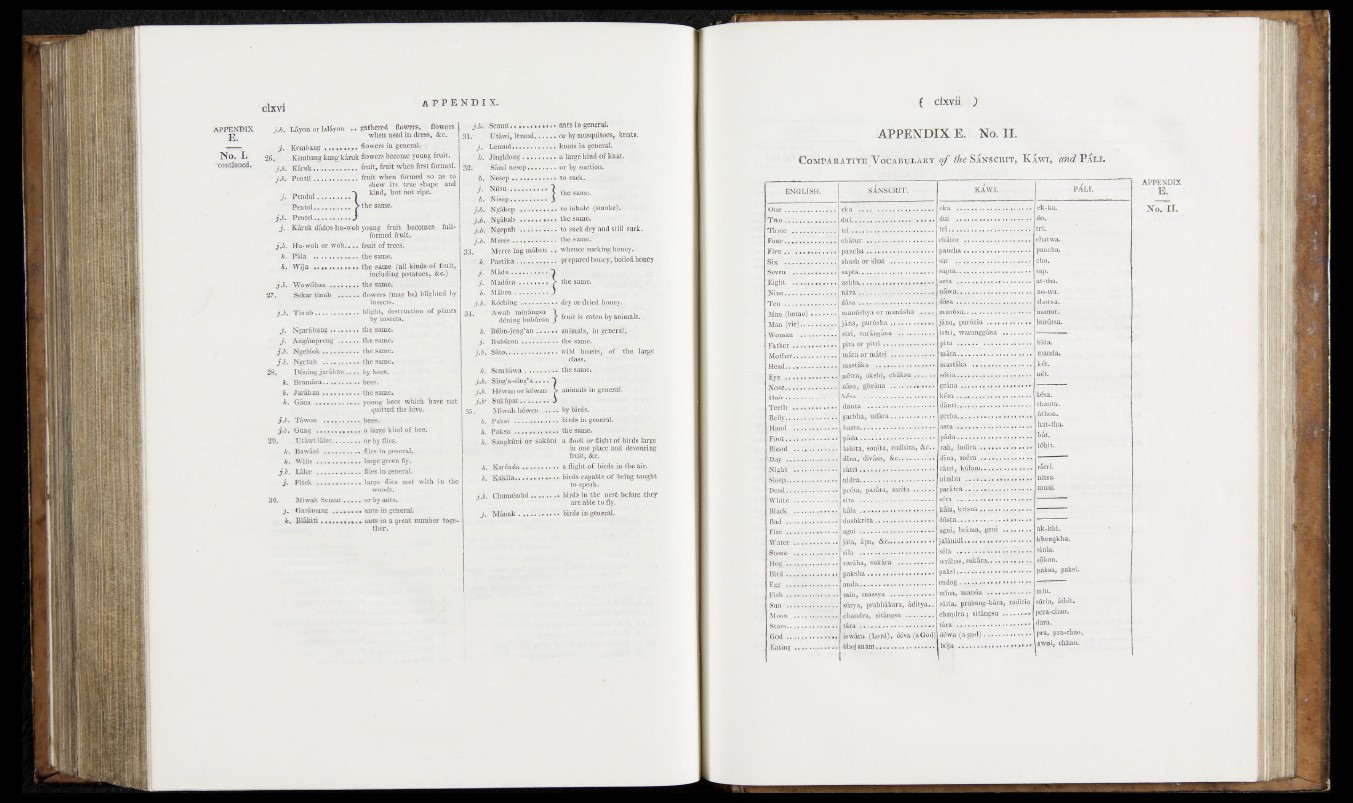 clxvi
APPENDIX.
APPENDIX
E.
No. I.
continued.
j.b. Láyon or laláyon .. gathered flowers, flowers
when used in dress, &c.
j. Kembang ......... flowers in general.
26. Kembang kang káruk flowers become young fruit.
j.b. Káruk ............ fruit, fruit when first formed.
j.b. Pentil ............ fruit when formed so as to
shew its true shape and
kind, but not ripe.
j. Pendul ..........
Pentol ........... the same.
j.b. Pentel ...........
j. Káruk dádos hu-woh young fruit becomes full-
formed fruit.
j.b. Hu-woh or woh .... fruit of trees.
k. Pála ............ the same.
k. Wija ............ the same (all kinds of fruit,
including potatoes, &c.)
j.b. Wowóhan ......... the same.
27. Sekar tinub ...... flowers (may be) blighted by
insects.
j.b. Tinub ............ blight, destruction of plants
by insects.
j. Ngarúbung ........ the same.
j. Anggúnpreng ...... the same.
j.b. Ngebiok .......... the same.
j.b. Ngetub .......... the same.
28. Déning jaráhan .... by bees.
k. Bramára .......... bees.
k. Jaráhan .......... the same.
k. Gána ............ young bees which have not
quitted the hive.
j.b. Táwon .......... bees.
j.b. Gung ............ a large kind of bee.
29. Utáwi láler ........ or by flies.
k. Bawási .......... flies in general.
k. Wilis ............ large green fly.
j.b. Láler ............ flies in general.
j. Pitek ............ large flies met with in the
woods.
30. Miwah Semut ...... or by ants.
j. Garámang ......... ants in general.
k. Blákiti ........... ants in a great number toge-
ther.
j.b. Semut ............ ants in general.
31. Utáwi, lemud, ...... or by musquitoes, knats.
j. Lemud ............ knats in general.
b. Jingklong ......... a large kind of knat.
32. Sámi nesep ........ or by suction.
b. Nesep ............ to suck.
j. Núsu ............
b. Nisep ............ the same.
j.b. Ngákep .......... to inhale (smoke).
j.b. Ngáhab .......... the same.
j.b. Ngepuh .......... to suck dry and still suck.
j.b. Merce ............ the same.
33. Merce ing máben .. whence sucking honey.
k. Pastika ........... prepared honey, boiled honey
j. Mádu ............
j. Madúra .......... the same.
k. Máben ...........
j.b. Kóching .......... dry or dried honey.
34. Awoh minángsu
déning bubúron fruit is eaten by animals.
k. Búbu-jeng'an ...... animals, in general.
j. Bubúron .......... the same.
j.b. Sáto ............. wild beasts, of the large
class.
k. Semháwa ......... the same.
j.b. Sing'a-sing'a .....
j.k. Héwan or kéwan animals in general.
j.b. Sukúpat .........
35. Miwah héwen .... by birds.
b. Paksi ............ birds in general.
k. Paksa ............ the same.
k. Sangkúni or sakúni a flock or flight of birds large
in one place and devouring
fruit, &c.
k. Karúnda .......... a flight of birds in the air.
k. Kukila ............ birds capable of being taught
to speak.
j.b. Chuméndol ........ birds in the nest before they
are able to fly.
j. Mánuk ........... birds in general.
( clxvii )
APPENDIX E. No. II.
COMPARATIVE VOCABULARY of the SÁNSCRIT, KÁWI, and PÁLI.
APPENDIX
E.
No. II.
ENGLISH. SÁNSCRIT. KÁWI. PÁLI.
One .............. eka .............. eka .............. ek-ka.
Two .............. dui .............. dui .............. do.
Three ............ tri .............. tri .............. tri.
Four ............. chátur ........... chátor ........... chatwa.
Five ............. pancha ........... pancha ........... pancha.
Six .............. shash or shat .... sat .............. cho.
Seven ............ sapta ............ sapta ............ sap.
Eight ............ ashta ............ asta ............. at-tha.
Nine ............. náva ............. náwa ............. no-wa.
Ten .............. dása ............. dása ............. thotsa.
Man (homo) ....... manúshya or manúsha .... manúsa ........... manut.
Man (vir) ........ jána, purúsha .... jána, purúsia .... burútsa.
Woman ............ stri, varángána .. istri, waranggána ..
Father ........... pita or pitri .... pita ............. bida.
Mother ........... máta or mátri .... máta ............. manda.
Head ............. mastáka .......... mastáka .......... két.
Eye .............. nétra, akshi, cháksu .... sócia ............ nét.
Nose ............. nása, ghrána ..... grána ............
Hair ............. késa ............. késa ............. késa.
Teeth ............ danta ............ dánti ............ thanta.
Belly ............ garbha, udára .... gerba ............ áthon.
Hand ............. hasta ............ asta ............. hat-tha.
Foot ............. páda ............. páda ............. bát.
Blood ............ lohita, sonita, rudhira, &c. .. rah, ludira ...... lóhit.
Day .............. dina, divása, &c. .. dina, méra .......
Night ............ rátri ............ rátri, kúlam ..... rátri.
Sleep ............ nidra ............ nindra ........... nitsa.
Dead ............. préta, paráta, mrita .... parátra .......... muai.
White ............ sita ............. séta .............
Black ............ kála ............. kála, krisna .....
Bad .............. dushkrita ........ dústa ............
Fire ............. agni ............. agni, bráma, geni .. ak-khi.
Water ............ jála, ápa, &c. ... jalánidi ......... khongkha.
Stone ............ sila ............. séla ............. sínla.
Hog .............. varáha, sukára ... waráhas, sukára ... súkon.
Bird ............. paksha ........... paksi ............ paksa, paksi.
Egg .............. anda ............. endog ............
Fish ............. min, massya ...... mina, matsia ..... min.
Sun .............. súrya, prabhákara, áditya .. súria, prabang-kára, raditia súria, áthit.
Moon ............. chandra, sitángsu .. chandra; sitángsu .. pera-chan.
Stars ............ tára ............. tára ............. dára.
God .............. iswára (Lord), déva (a God) déwa (a god) ..... pra, pra-chao.
Eating ........... bhojanam ......... bója ............. awoi, chhan.